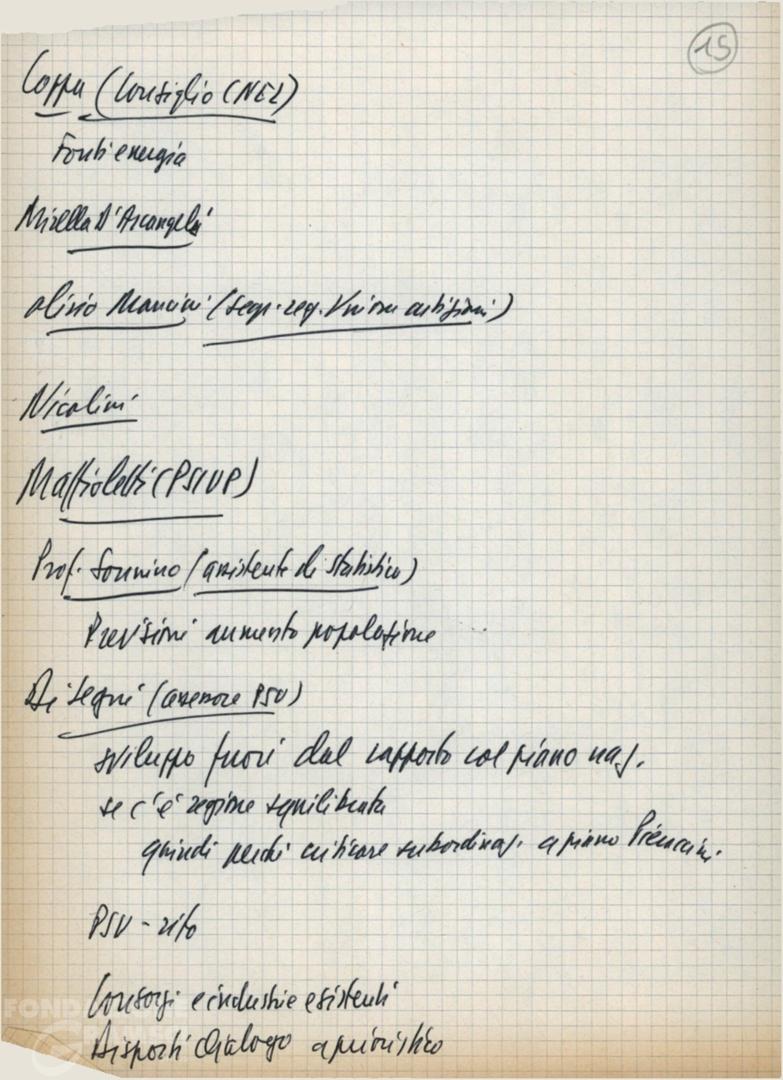 15
Coppa (Consiglio CNEL)
Fonti energia
Mirella D'Arcangeli
Olivio Mancini (segr. reg. Unione artigiani)
Nicolini
Maffioletti (PSIUP)
Prof. Sonnino (assistente di statistica)
Previsioni aumento popolazione
Di Segni (assessore PSU)
sviluppo fuori dal rapporto col piano naz.
se c'è regione squilibrata
quindi perché criticare subordinaz. a piano Pieraccini.
PSU - rifo
Consorzi e industrie esistenti
Disposti dialogo aprioristico
FOND